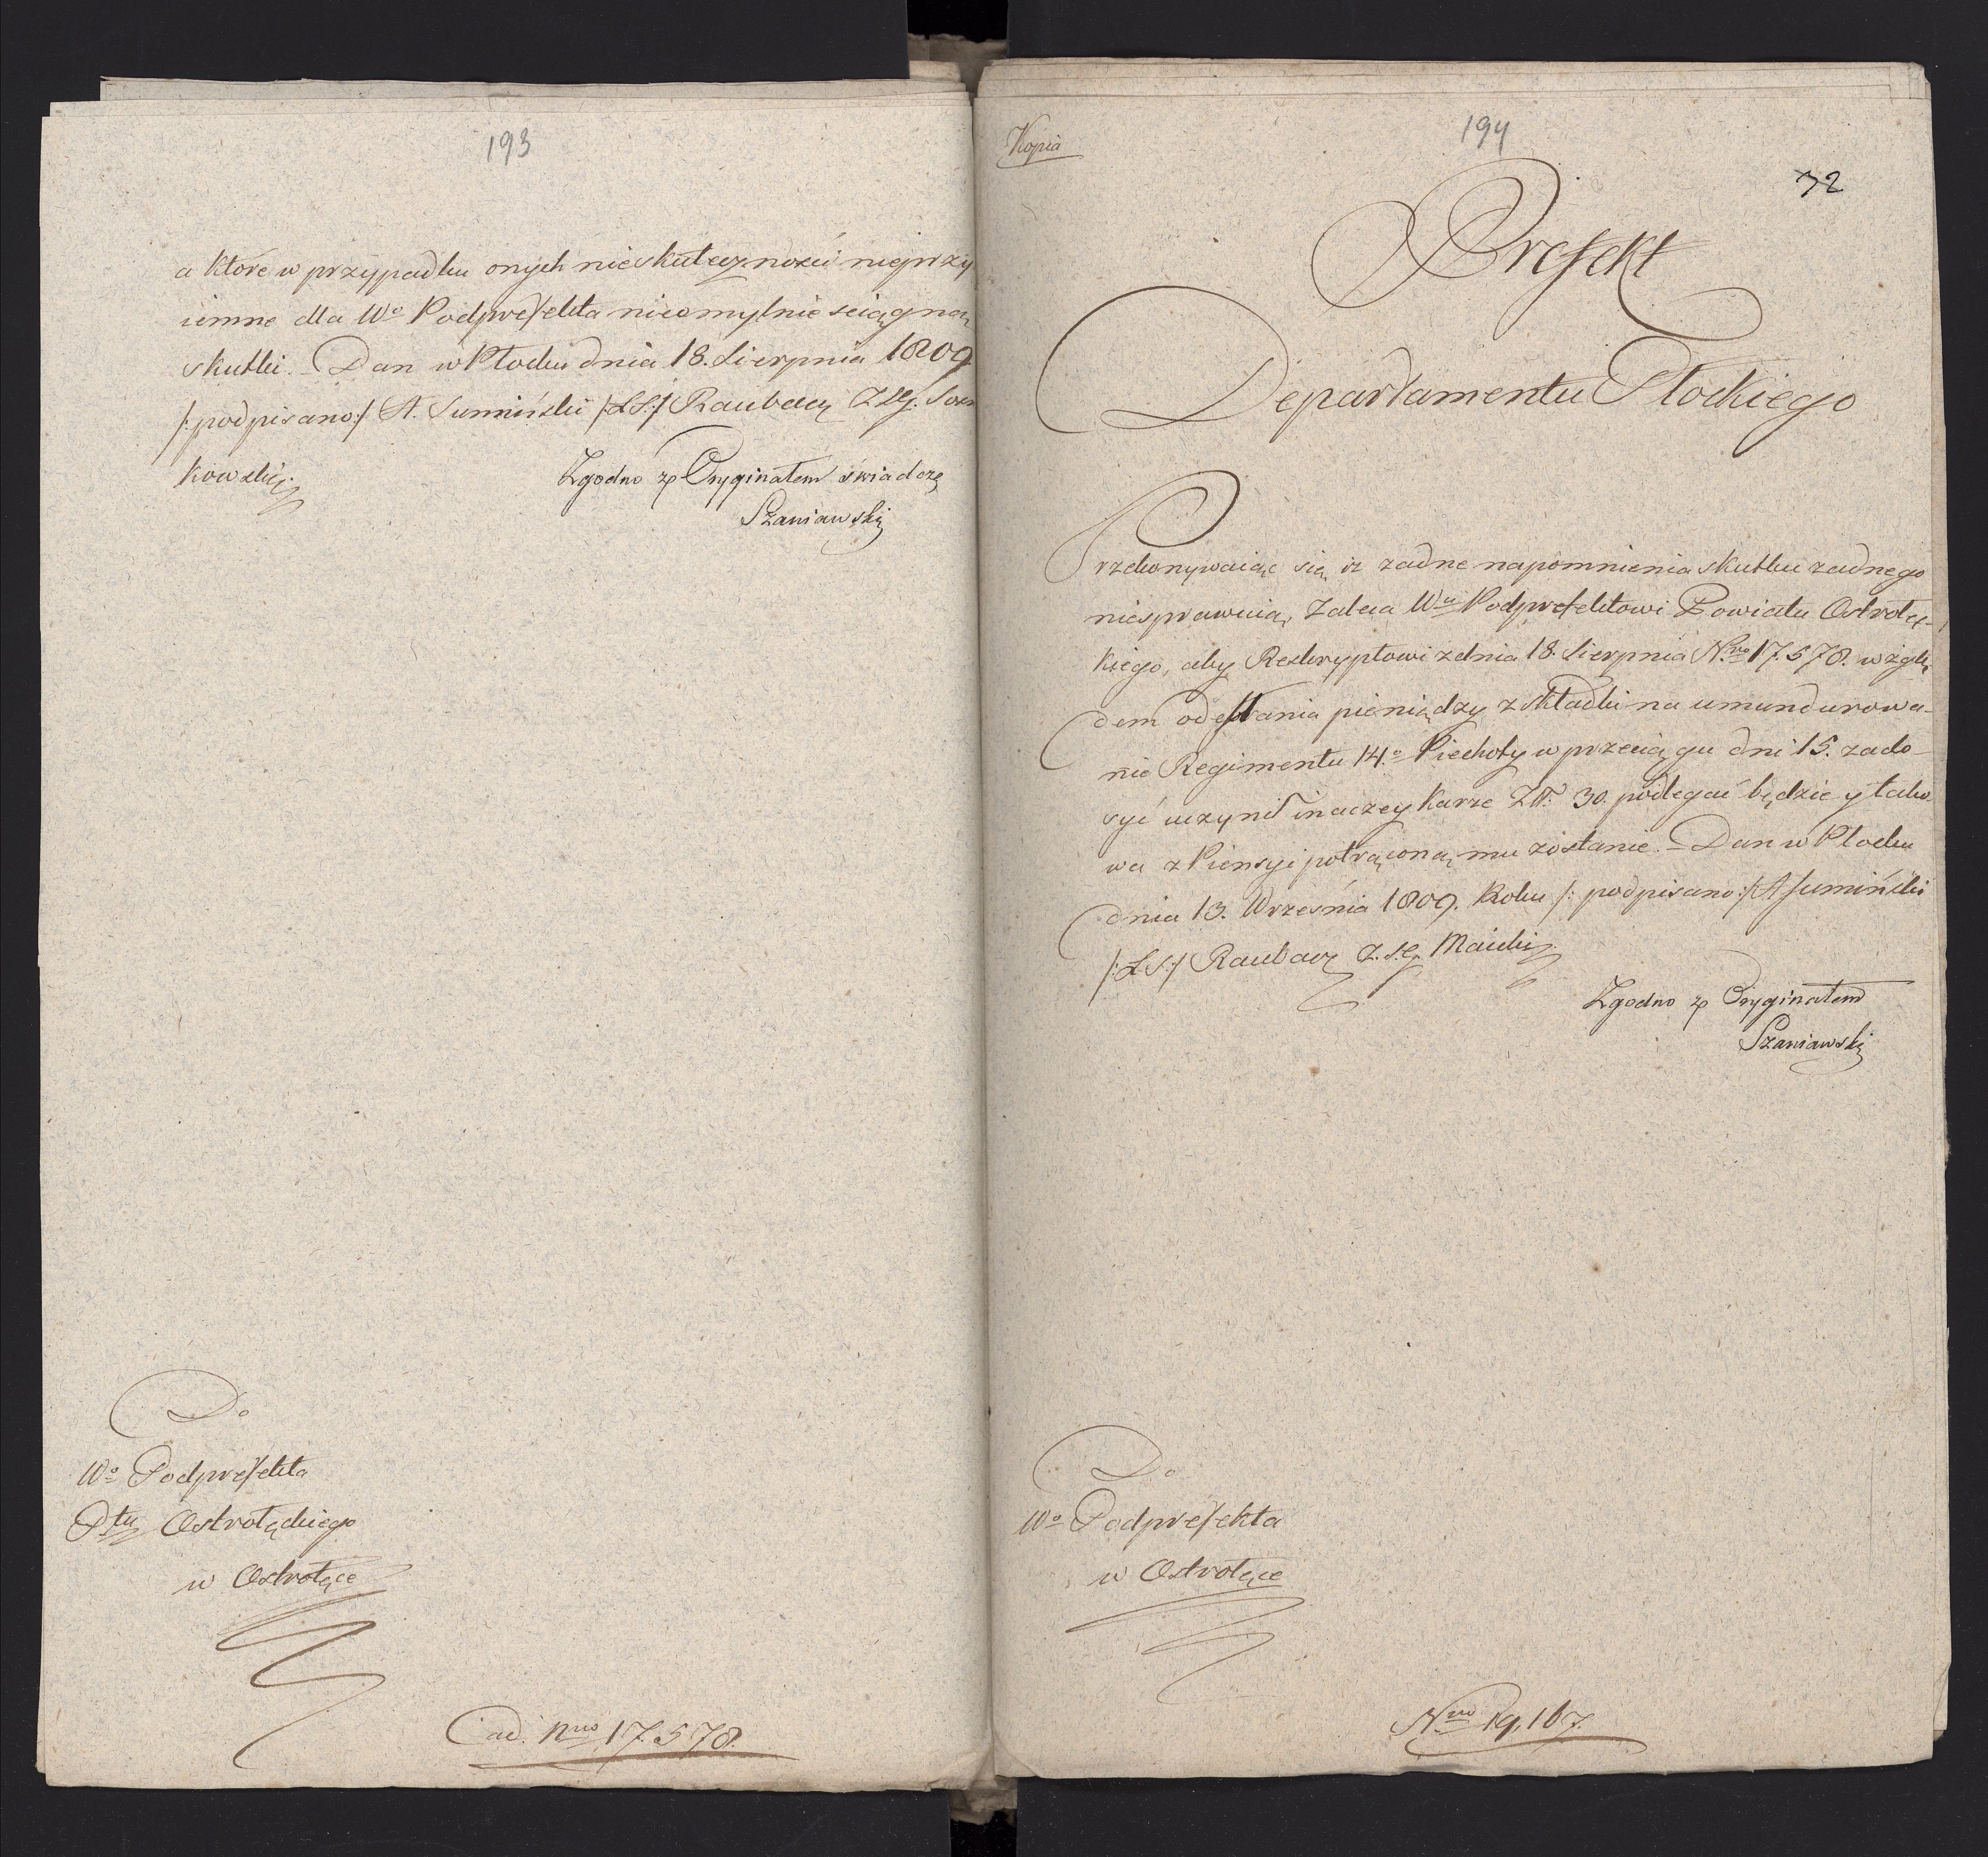 193
a które w przypadku onych nieskuteczności nieprzy
iemne dla Wo Podprefekta nieomylnie sciągną
skutki. Dan w Płocku dnia 18. Sierpnia 1809
/: podpisano :/ A. Sumiński /: LS :/ Raubacz Z Sg. Sosn
kowski
Zgodno z Oryginałem świadczę
Szaniawski
Do
Wo Podprefekta
Ptu Ostrołęckiego
w Ostrołęce
ad. Nro 17.578.
Kopia
194
32
Prefekt
Departamentu Płockiego
Przekonywaiąc się iż żadne napomnienia skutku żadnego
niesprawuią, Zaleca Wu Podprefektowi Powiatu Ostrołęc-
kiego, aby Reskryptowi z dnia 18. Sierpnia Nro 17.578. wzglę
dem odesłania pieniędzy z składki na umundurowa-
nie Regimentu 14.o Piechoty w przeciągu dni 15. zado-
syć uczynił inaczey karze Zł. 30. podlegać będzie y tako-
wa z Piensyi potrąconą mu zostanie. Dan w Płocku
dnia 13. Września 1809. Roku /: podpisano :/ A Sumiński
/: L S :/ Raubacz Z. Sg. Maiuki
Zgodno z Oryginałem
Szaniawski
Do
Wo Podprefekta
w Ostrołęce
Nro 19,167.